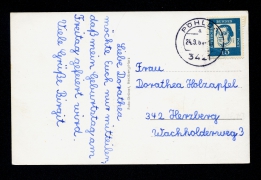 Liebe Dorothea
möchte Euch nur mitteilen,
daß mein Geburtstag am
Freitag gefeiert wird.
Viele Grüße Birgit
PÖHLDE
3421
Frau
Dorothea Holzapfel
342 Herzberg
Wacholderweg 3